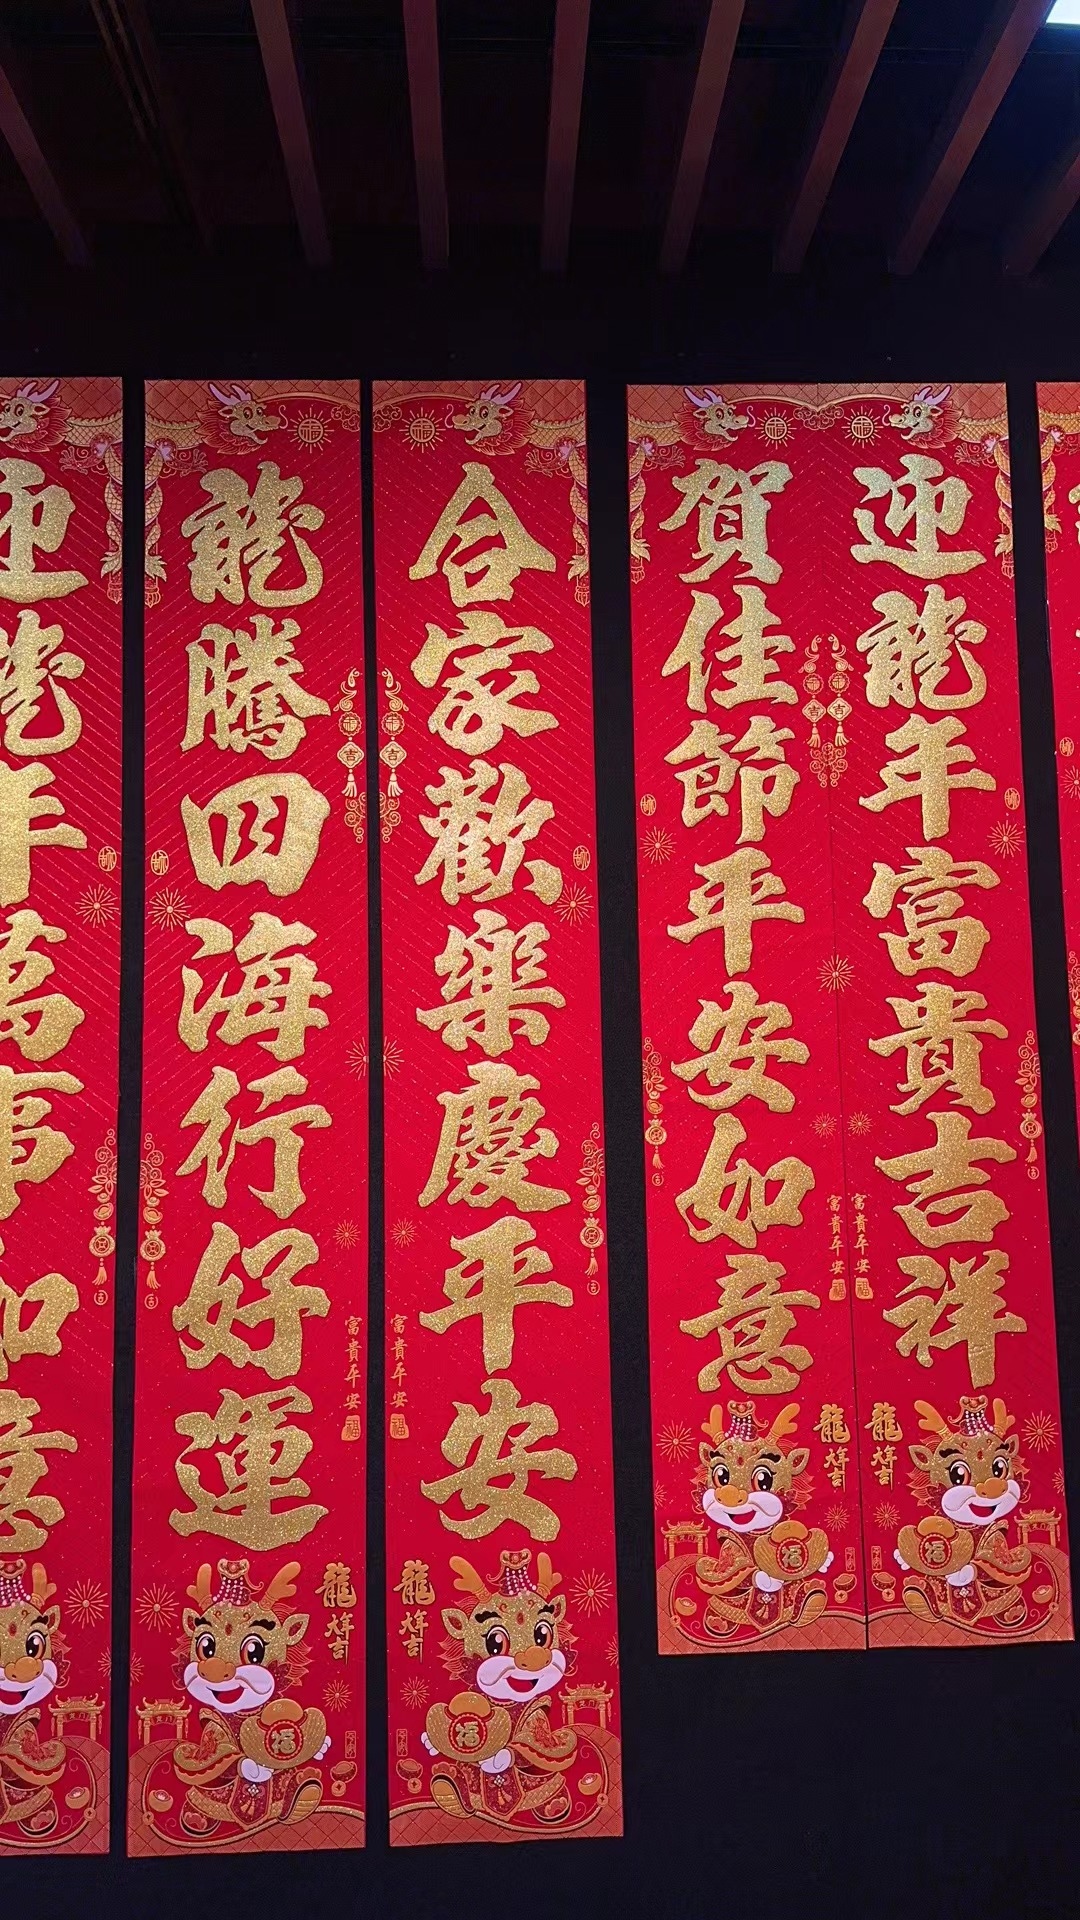 迎龍年富貴吉祥
富貴平安
龍年大吉
福
賀佳節平安如意
富貴平安
龍年大吉
福
合家歡樂慶平安
富貴平安
龍年大吉
福
龍騰四海行好運
富貴平安
龍年大吉
福
迎龍年萬事如意